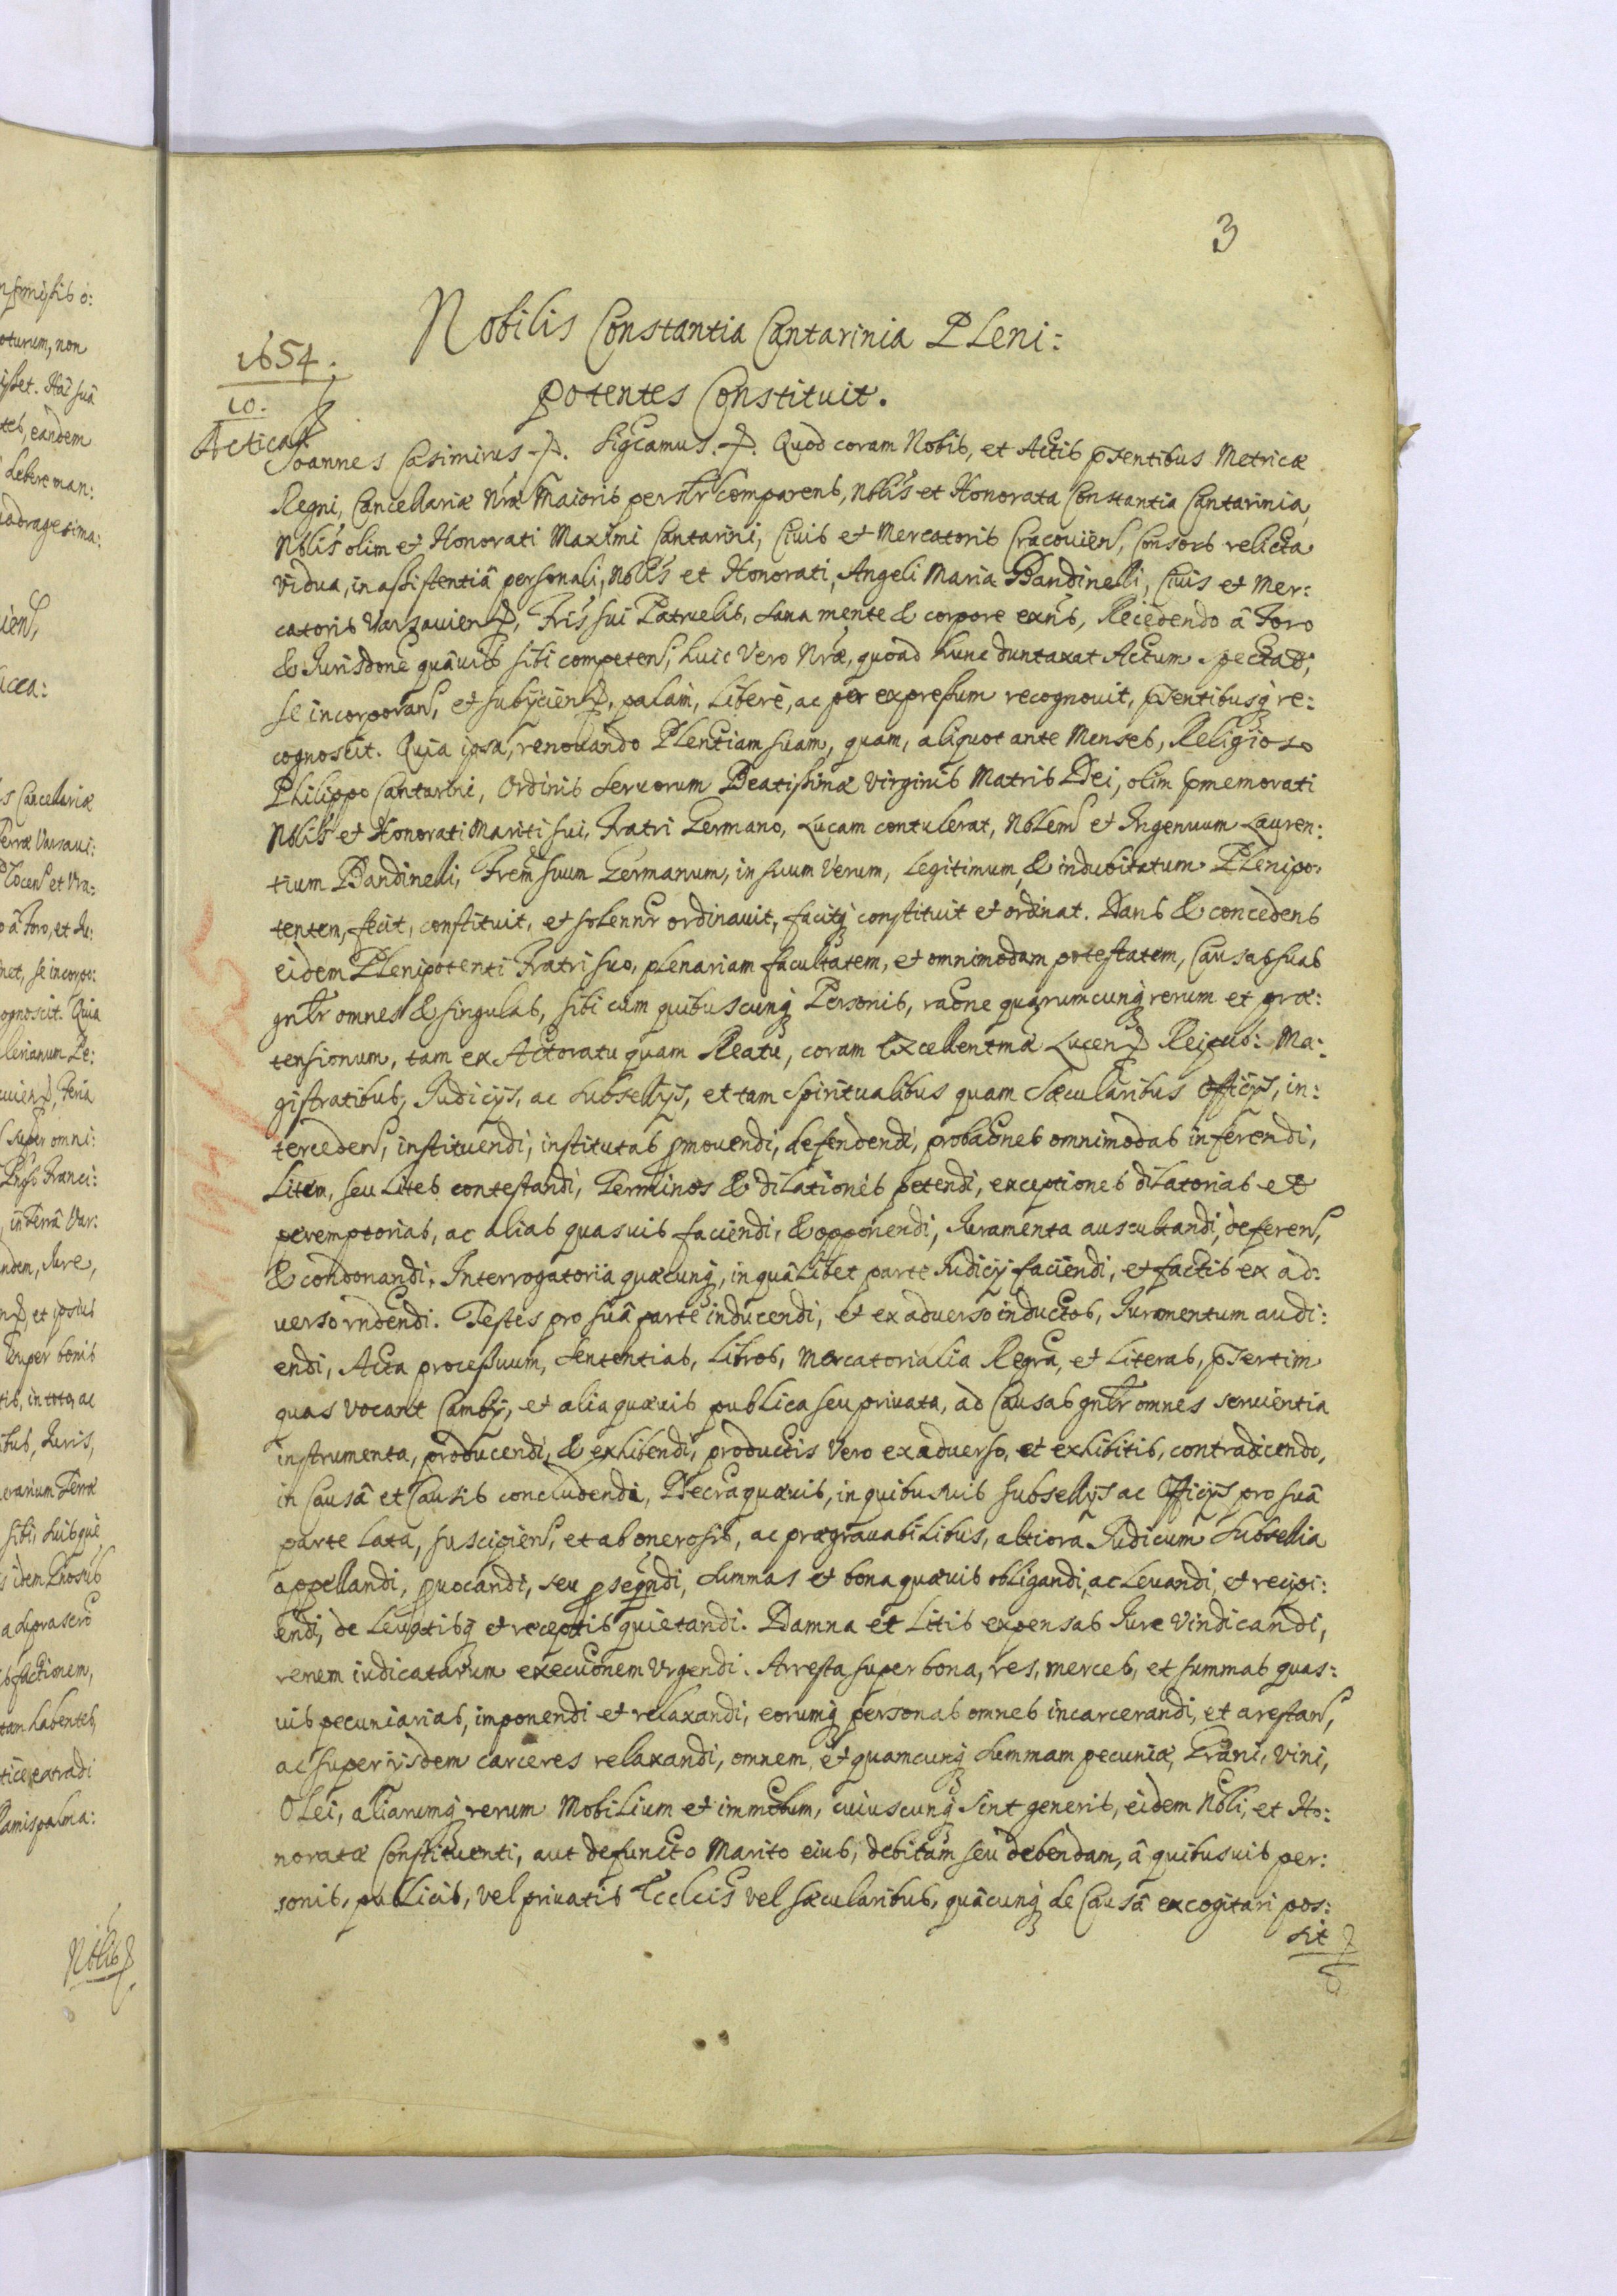 3
Nobilis Constantia Cantarinia Pleni:
potentes Constituit.
1654.
10.
Joannes Casimirus. Sigcamus. Quod coram Nobis, et Actis pñtentibus Metricæ
Regni, Cancellariæ Nræ Maioris persnlr Comparens, Nblis et Honorata Constantia Cantarinia,
Nblis olim et Honorati Maximi Cantarini, Civis et Mercatoris Cracouiens, Consors relicta
Vidua, in assistentiâ personali, Nblis et Honorati, Angeli Maria Bandinelli, Civis et Mer:
catoris Varsauien, Fris sui Patruelis, sana mente & corpore exñs, Recedendo â Foro
& Jurisdone quâuis sibi competen, huic Vero Nræ, quoad hunc duntaxat Actum spectat,
se incorporan, et subijcien, palàm, liberè, ac per expressum recognouit, pñtentibusq re:
cognoscit. Quia ipsa, renouando Plentiam suam, quam, aliquot ante Menses, Religioso
Philippo Cantarini, Ordinis Seruorum Beatissimæ Virginis Matris Dei, olim pmemorati
Nblis et Honorati Mariti sui, Fratri Germano, Lucam contulerat, Nblem et Ingenuum Lauren:
tium Bandinelli, Frem suum Germanum, in suum Verum, legitimum & indubitatum Plenipo:
tentem, fecit, constituit, et solennr ordinauit, facitq constituit et ordinat. Dans & concedens
eidem Plenipotenti Fratri suo, plenariam facultatem, et omnimodam potestatem, Causas suas
gnlr omnes & singulas, sibi cum quibuscunq Personis, raone quarumcunq rerum et præ:
tensionum, tam ex Actoratu quam Reatu, coram Excellentmæ Lucen Reipub: Ma:
gistratibus, Judicijs, ac Subsellijs, et tam Spiritualibus quam Sæcularibus Officijs, in:
terceden, instituendi, institutas pmouendi, defendendi, probaones omnimodas inferendi,
Litem, seu Lites contestandi, Terminos & dilationes petendi, exceptiones dilatorias et
peremptorias, ac alias quasuis faciendi, & opponendi, Juramenta auscultandi, deferen,
& condonandi. Interrogatoria quæcunq, in quâlibet parte Judicij faciendi, et factis ex ad:
uerso rñdendi. Testes pro suâ parte inducendi, et ex aduerso inductos, Juramentum audi:
endi, Acta processuum, Sententias, Libros, Mercatorialia Regra, et Literas, psertim
quas vocant Cambij, et alia quæuis publica seu priuata, ad Causas gnlr omnes seruientia
instrumenta, producendi, & exhibendi, productis Vero ex aduerso, et exhibitis, contradicendo,
in Causâ et Causis concludendi, Decra quæuis, in quibusuis subsellijs ac Officijs pro suâ
parte lata, suscipien, et ab onerosis, ac prægrauabilibus, altiora Judicum Subsellia
appellandi, puocandi, seu psequndi, Summas et bona quæuis obligandi, ac leuandi, et recipi:
endi, de leuatisq et receptis quietandi. Damna et Litis expensas Jure Vindicandi,
rerum iudicatarum execuonem Vrgendi. Arresta super bona, res, merces, et summas quas:
uis pecuniarias, imponendi et relaxandi, eorumq personas omnes incarcerandi, et arestan,
ac super ijsdem carceres relaxandi, omnem et quamcunq Summam pecuniæ, Grani, Vini,
Olei, aliarumq rerum Mobilium et immobium, cuiuscunq sint generis, eidem Nbli, et Ho:
noratæ Constituenti, aut defuncto Marito eius, debitam seu debendam, â quibusuis per:
sonis, publicis, vel priuatis Ecclcis vel sæcularibus, quâcunq de Causâ excogitari pos:
sit